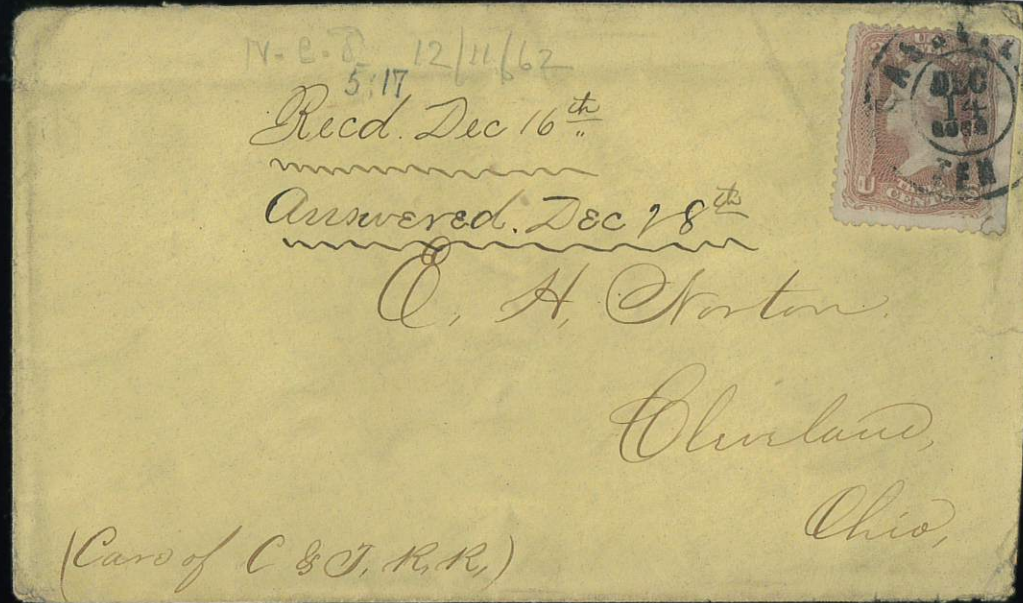 N. C. 8 12/11/62
5:17
Recd. Dec 16th
Answered. Dec 28th
E. H. Norton.
Cleveland,
Ohio,
(Care of C & T, R. R,)
DEC
14
TEN
U
CENTS